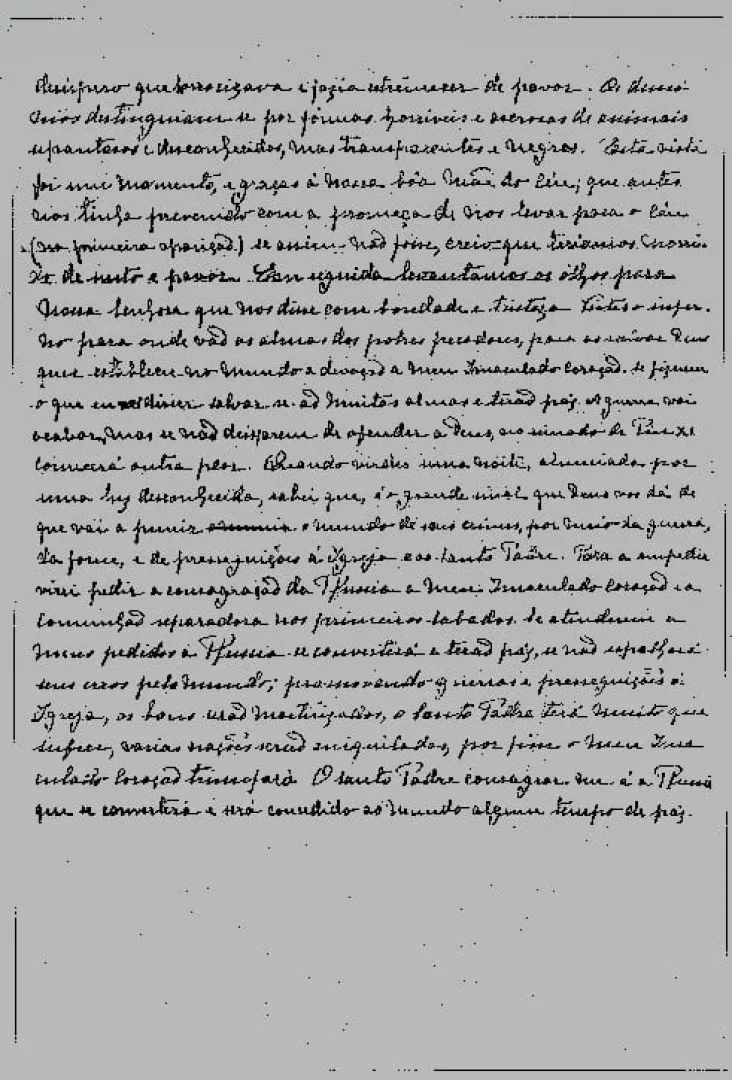 desispero que horrorizava e fazia estremecer de pavor. Os demo-
nios destinguiam-se por formas horriveis e acrosas de animais
espantosos e desconhecidos, mas transparentes e negros. Esta vista
foi um momento, e graças à nossa bôa Mãe do Céu; que antes
nos tinha prevenido com a promeça de nos levar para o Céu
(na primeira aparição.) se assim não fosse, creio que teriamos morri-
do de susto e pavor. Em seguida levantámos os olhos para
Nossa Senhora que nos disse com bondade e tristeza Vistes o infer-
no para onde vão as almas dos pobres pecadores, para as salvar Deus
quer establecer no mundo a devoção a meu Imaculado Coração. se fizerem
o que eu disser salvar-se-ão muitas almas e terão paz. A guerra vai
acabar, mas se não deixarem de ofender a Deus, no reinado de Pio XI
começará outra peor. Quando virdes uma noite, alumiada por
uma luz desconhecida, sabei que, é o grande sinal que Deus vos dá de
que vai a punir o mundo de seus crimes, por meio da guerra,
da fome, e de persseguições á Igreja e ao Santo Padre. Para a empedir
virei pedir a consagração da Russia a meu Imaculado Coração e a
Comunhão reparadora nos primeiros sabados. Se atenderem a
meus pedidos a Russia se converterá e terão paz, se não espalhará
seus erros pelo mundo; promovendo guerras e persseguições á
Igreja, os bons serão martirizados, o Santo Padre terá muito que
sufrer, varias nações serão aniquiladas, por fim o meu Ima
culado Coração triumfará O Santo Padre consagrar-me-á a Russia
que se converterá e será consedido ao mundo algum tempo de paz.